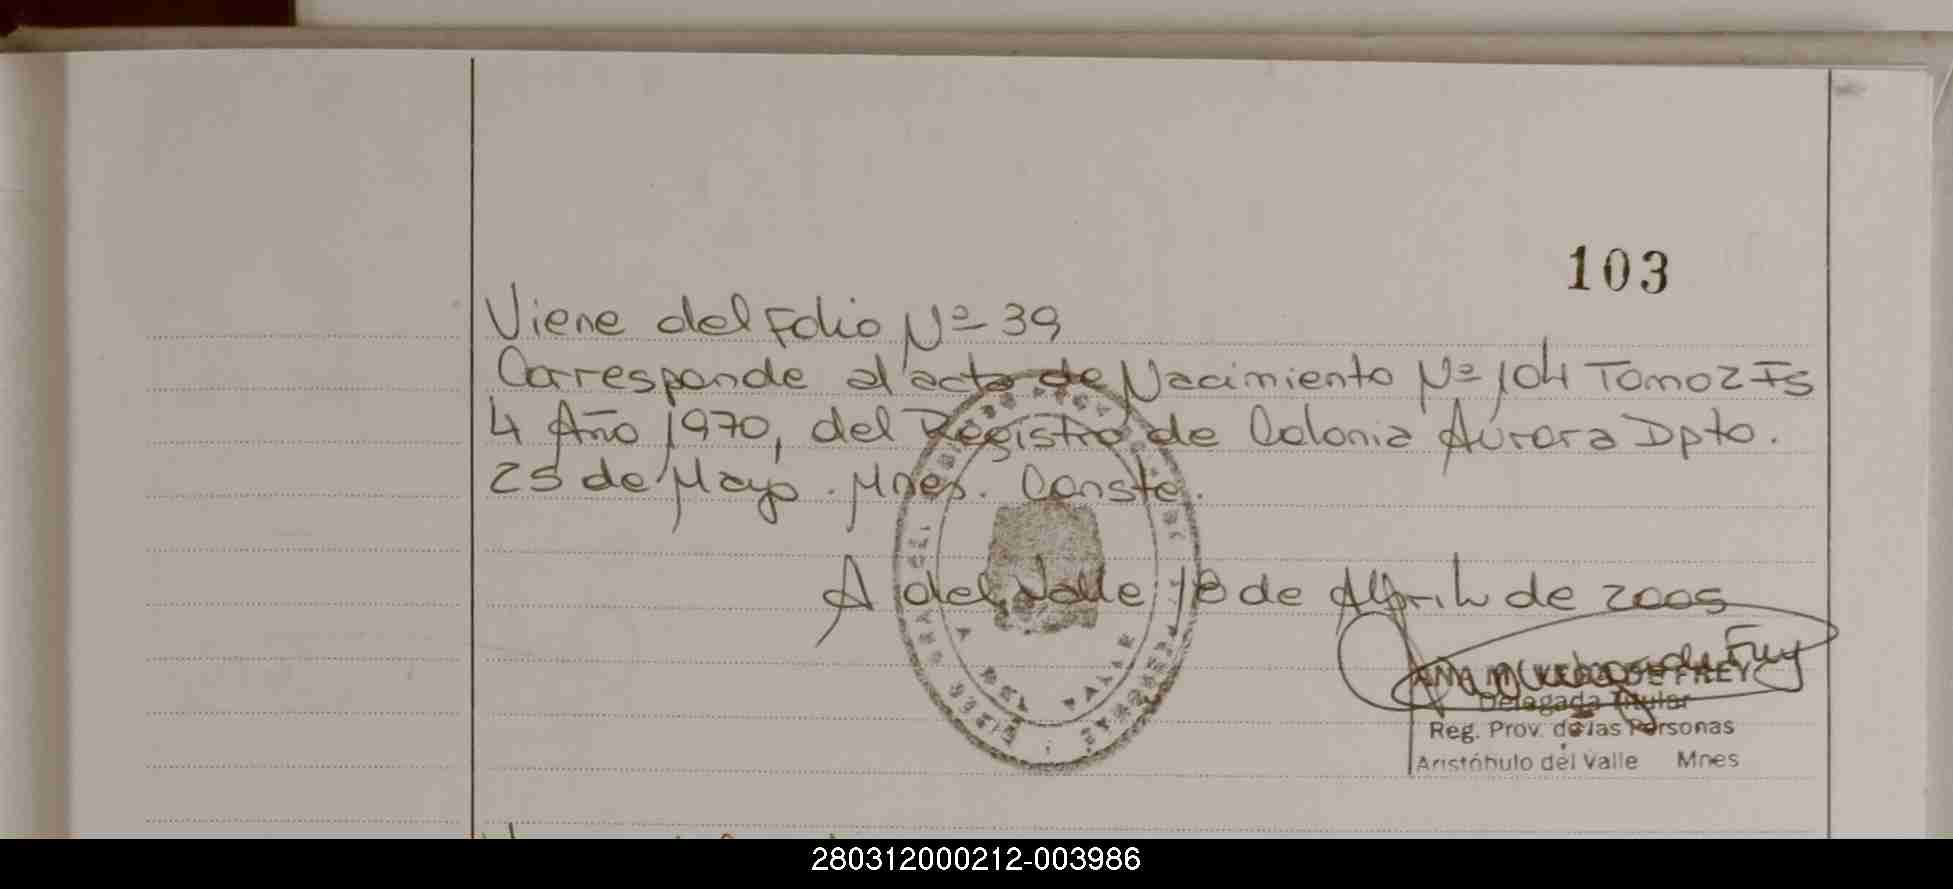 103
Viene del Folio Nº 39
Corresponde al acta de Nacimiento Nº 104 Tomo 2 Fs
4 Año 1970, del Registro de Colonia Aurora Dpto.
25 de Mayo. Mnes. Conste.
A del Valle 18 de Abril de 2005
DE FREY
Delegada Titular
Reg. Prov. de las Personas
Aristóbulo del Valle Mnes
280312000212-003986